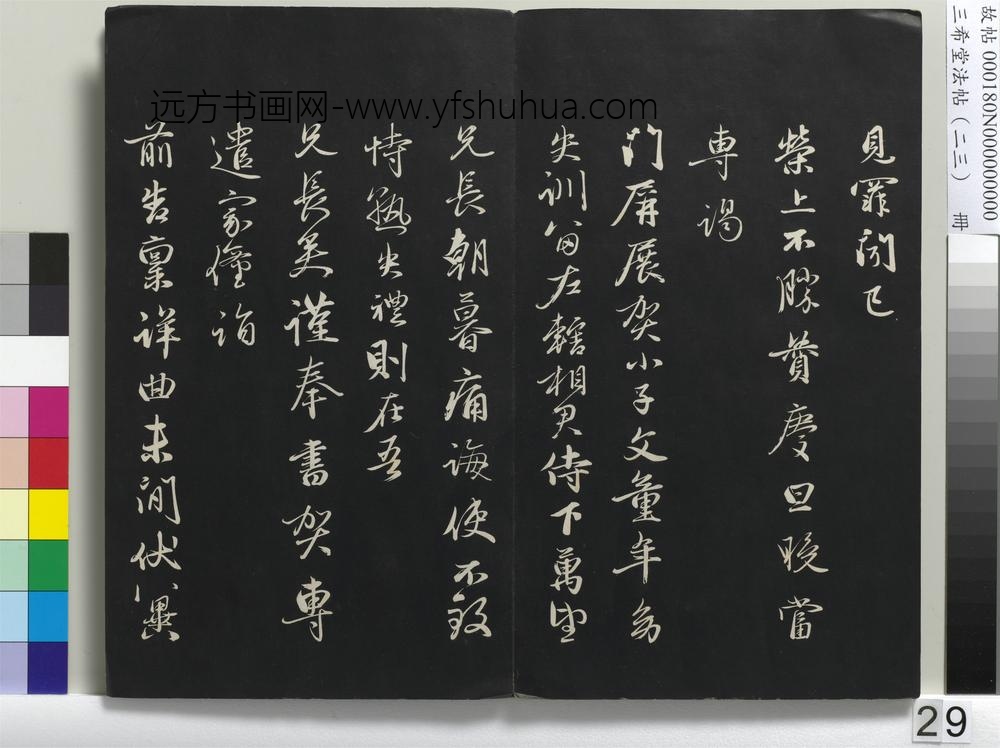 見罪聞已
榮上不勝贊慶旦晚當
專謁
門屏展賀小子文童年幼
失訓公左轄相君侍下萬望
兄長朝暮痛誨使不致
恃執失禮則在吾
兄長矣謹奉書賀專
遣家僮詣
前告稟詳曲未間伏冀
远方书画网-www.yfshuhua.com
故帖 000180N000000000
三希堂法帖(二三) 冊
29